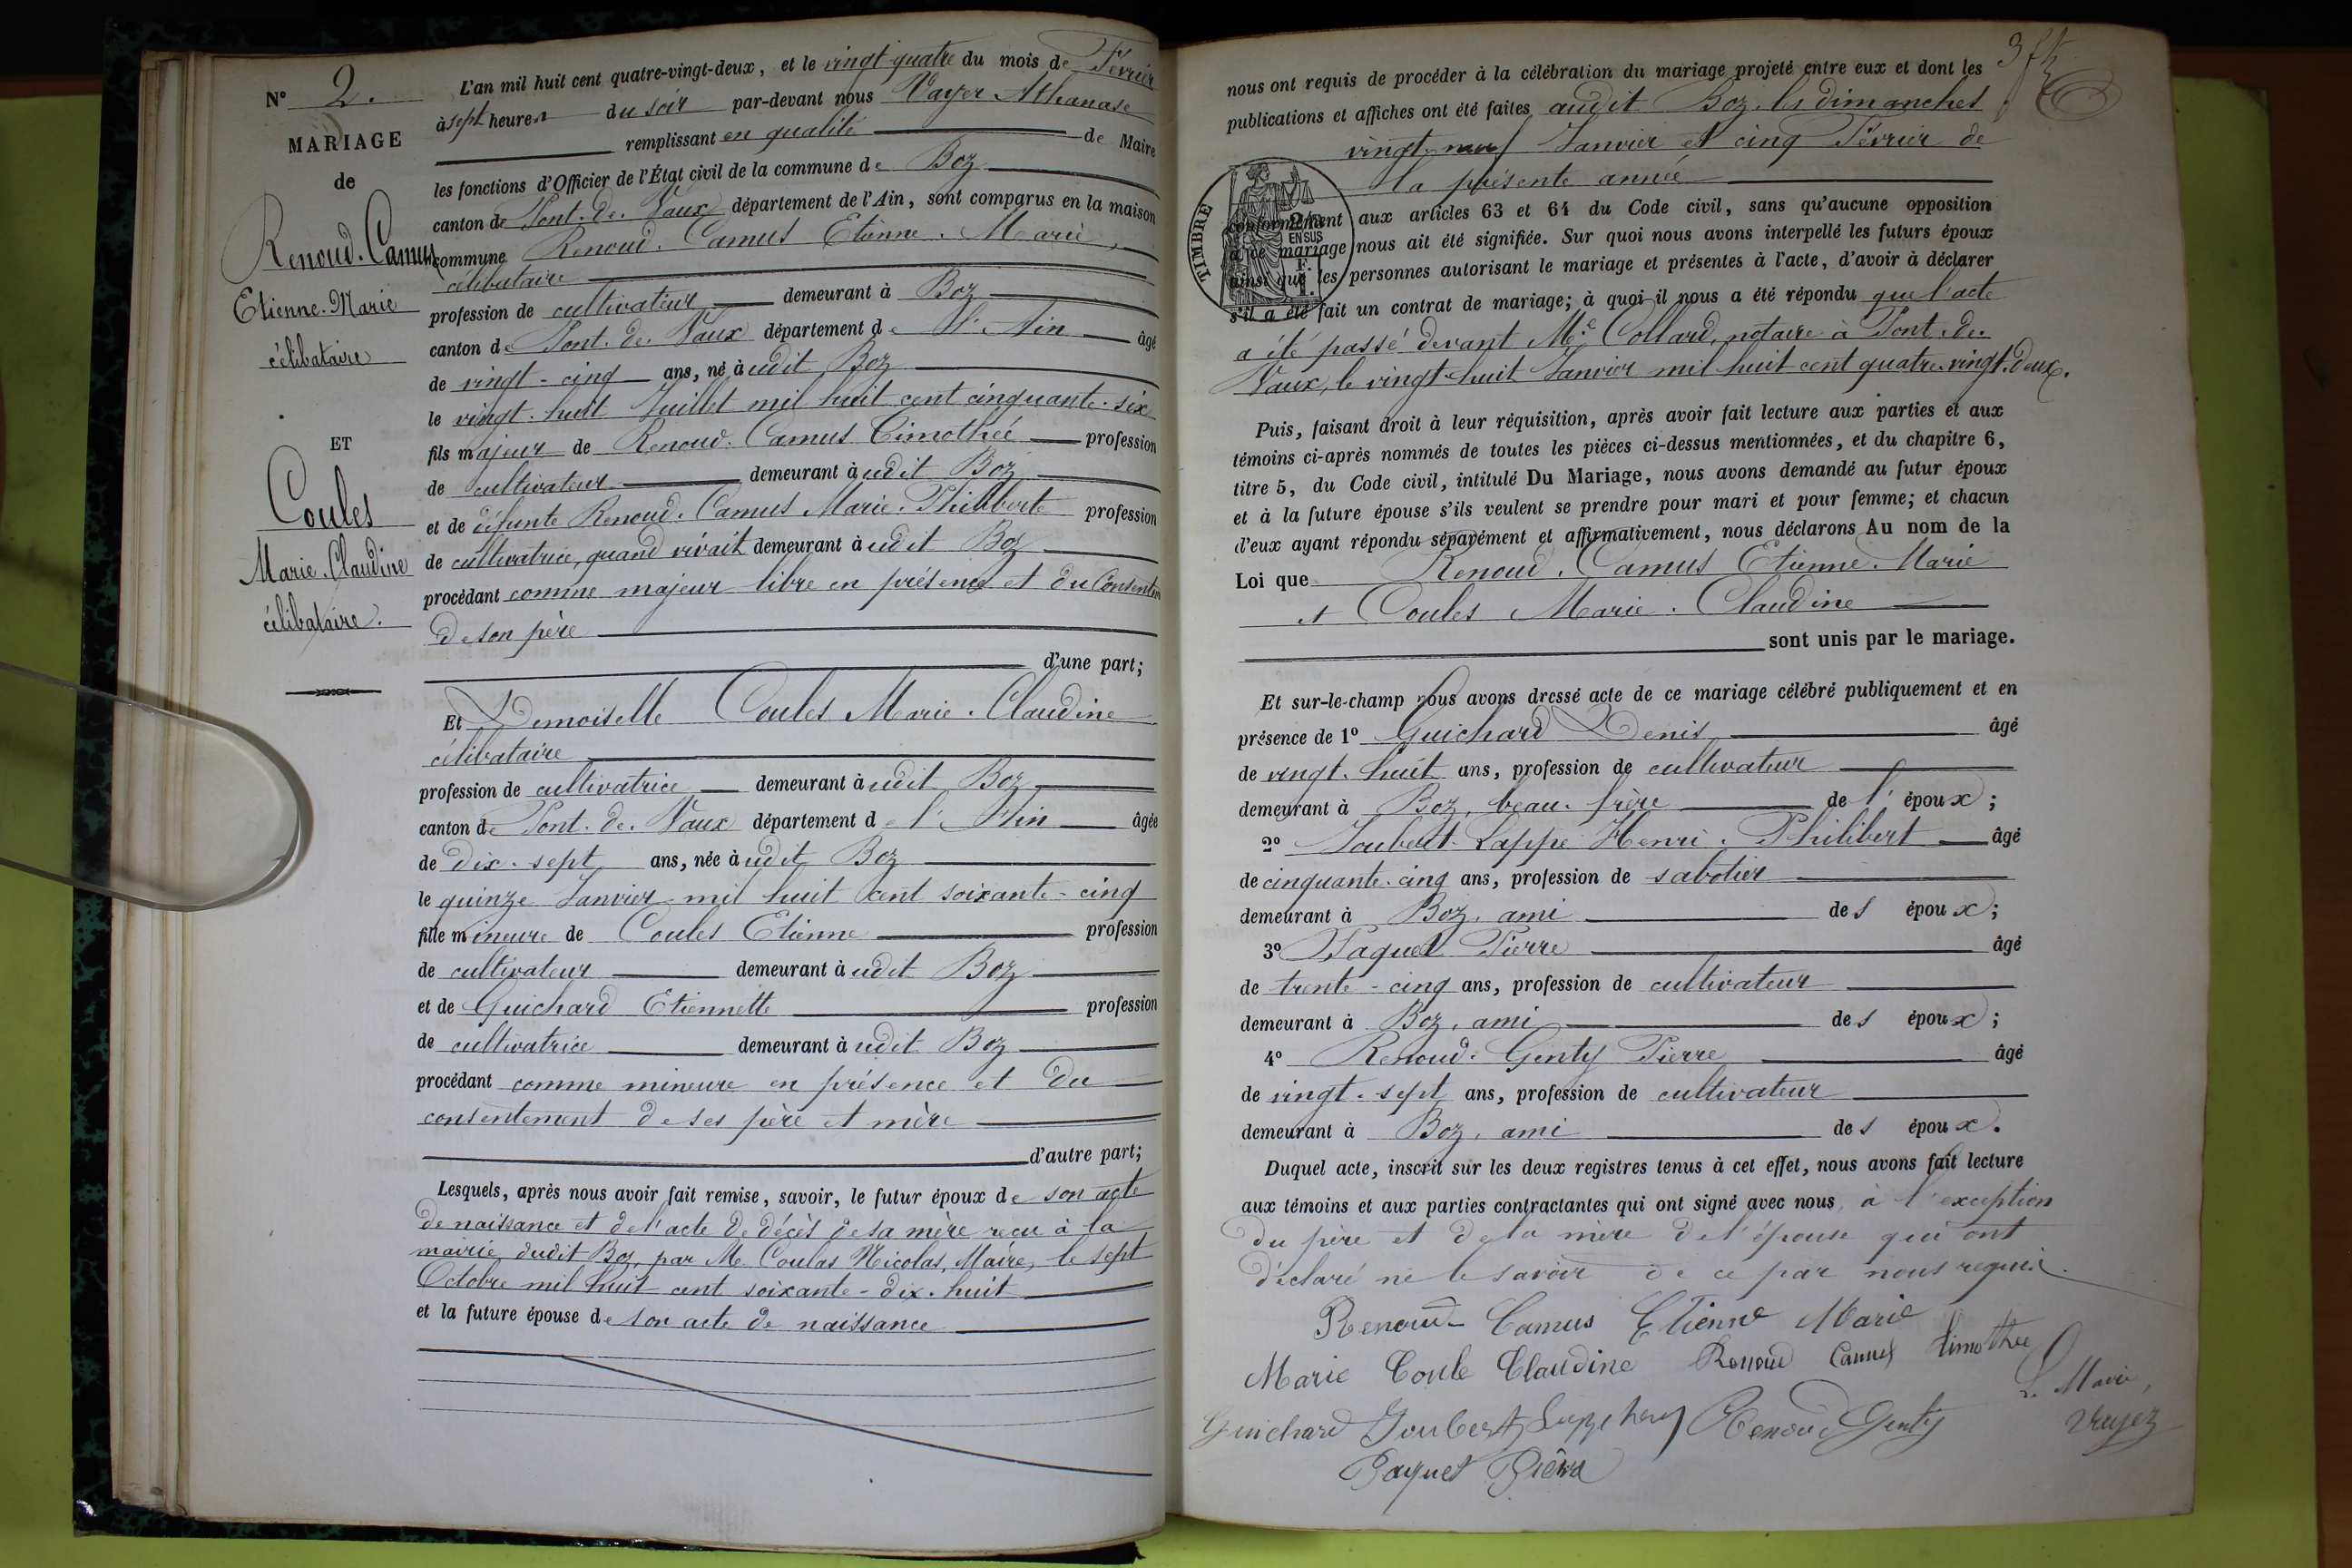 N° 2.
MARIAGE
de
Renoud. Camus
Etienne. Marie
célibataire
ET
Coules
Marie. Claudine
célibataire.
L'an mil huit cent quatre-vingt-deux, et le vingt-quatre du mois de Février
à sept heures du soir par-devant nous Vayer Athanase
remplissant en qualité de Maire
les fonctions d'Officier de l'État civil de la commune de Boz
canton de Pont. de. Vaux département de l'Ain, sont comparus en la maison
commune Renoud. Camus Etienne. Marie,
célibataire
profession de cultivateur demeurant à Boz
canton de Pont. de. Vaux département de l'Ain âgé
de vingt-cinq ans, né à udit Boz
le vingt. huit Juillet mil huit cent cinquante. six
fils majeur de Renoud. Camus Timothée profession
de cultivateur demeurant à udit Boz
et de défunte Renoud. Camus Marie. Philiberte profession
de cultivatrice, quand vivait demeurant à udit Boz
procédant comme majeur libre en présence et du consentem
de son père
d'une part;
Et Demoiselle Coules Marie. Claudine
célibataire
profession de cultivatrice demeurant à udit Boz
canton de Pont. de. Vaux département de l'Ain âgée
de dix. sept ans, née à udit Boz
le quinze Janvier mil huit cent soixante-cinq
fille mineure de Coules Etienne profession
de cultivateur demeurant à udit Boz
et de Guichard Etiennette profession
de cultivatrice demeurant à udit Boz
procédant comme mineure en présence et du
consentement de ses père et mère
d'autre part;
Lesquels, après nous avoir fait remise, savoir, le futur époux de son acte
de naissance et de l'acte de décès de sa mère reçu à la
mairie dudit Boz, par M. Coulas Nicolas, Maire, le sept
Octobre mil huit cent soixante-dix. huit
et la future épouse de son acte de naissance
nous ont requis de procéder à la célébration du mariage projeté entre eux et dont les
publications et affiches ont été faites audit Boz, les dimanches
vingt-neuf Janvier et cinq Février de
la présente année
TIMBRE
2/10
EN SUS
conformément aux articles 63 et 64 du Code civil, sans qu'aucune opposition
à ce mariage nous ait été signifiée. Sur quoi nous avons interpellé les futurs époux
ainsi que les personnes autorisant le mariage et présentes à l'acte, d'avoir à déclarer
s'il a été fait un contrat de mariage; à quoi il nous a été répondu que l'acte
a été passé devant Me Collard, notaire à Pont. de.
Vaux, le vingt-huit Janvier mil huit cent quatre. vingt. deux.
Puis, faisant droit à leur réquisition, après avoir fait lecture aux parties et aux
témoins ci-après nommés de toutes les pièces ci-dessus mentionnées, et du chapitre 6,
titre 5, du Code civil, intitulé Du Mariage, nous avons demandé au futur époux
et à la future épouse s'ils veulent se prendre pour mari et pour femme; et chacun
d'eux ayant répondu séparément et affirmativement, nous déclarons Au nom de la
Loi que Renoud. Camus Etienne. Marie
et Coules Marie. Claudine
sont unis par le mariage.
Et sur-le-champ nous avons dressé acte de ce mariage célébré publiquement et en
présence de 1° Guichard Denis âgé
de vingt. huit ans, profession de cultivateur
demeurant à Boz, beau. frère de l'époux;
2° Joubert-Lappe Henri. Philibert âgé
de cinquante. cinq ans, profession de sabotier
demeurant à Boz, ami des époux;
3° Paquet Pierre âgé
de trente-cinq ans, profession de cultivateur
demeurant à Boz, ami des époux;
4° Renoud. Genty Pierre âgé
de vingt. sept ans, profession de cultivateur
demeurant à Boz, ami des époux.
Duquel acte, inscrit sur les deux registres tenus à cet effet, nous avons fait lecture
aux témoins et aux parties contractantes qui ont signé avec nous, à l'exception
du père et de la mère de l'épouse qui ont
déclaré ne le savoir de ce par nous requis.
Renoud Camus Etienne Marie
Marie Coule Claudine Renoud Camus timothée
Guichard Joubert Renoud Genty
Le Maire,
Vayer
Paquet Pierre